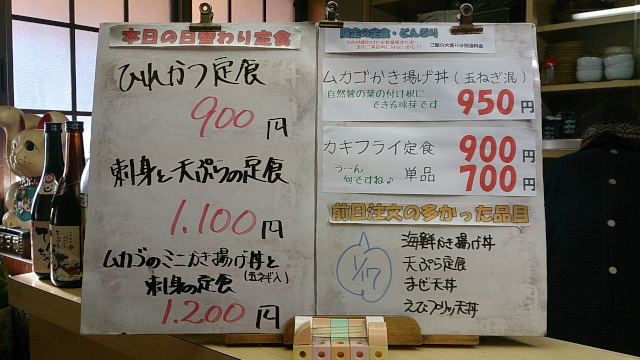 本日の日替わり定食
ひれかつ定食
900円
刺身と天ぷらの定食
1.100円
ムカゴのミニかき揚げ丼と
刺身の定食(玉ネギ入)
1.200円
限定の定食・どんぶり
ご飯の大盛りは別途料金
ムカゴかき揚げ丼(玉ねぎ混)
自然薯の葉の付け根に
できる球芽です
950円
カキフライ定食 900円
うーん
何ですね♪
単品 700円
前日注文の多かった品目
1/17
海鮮かき揚げ丼
天ぷら定食
まぜ天丼
えびブリッ天丼